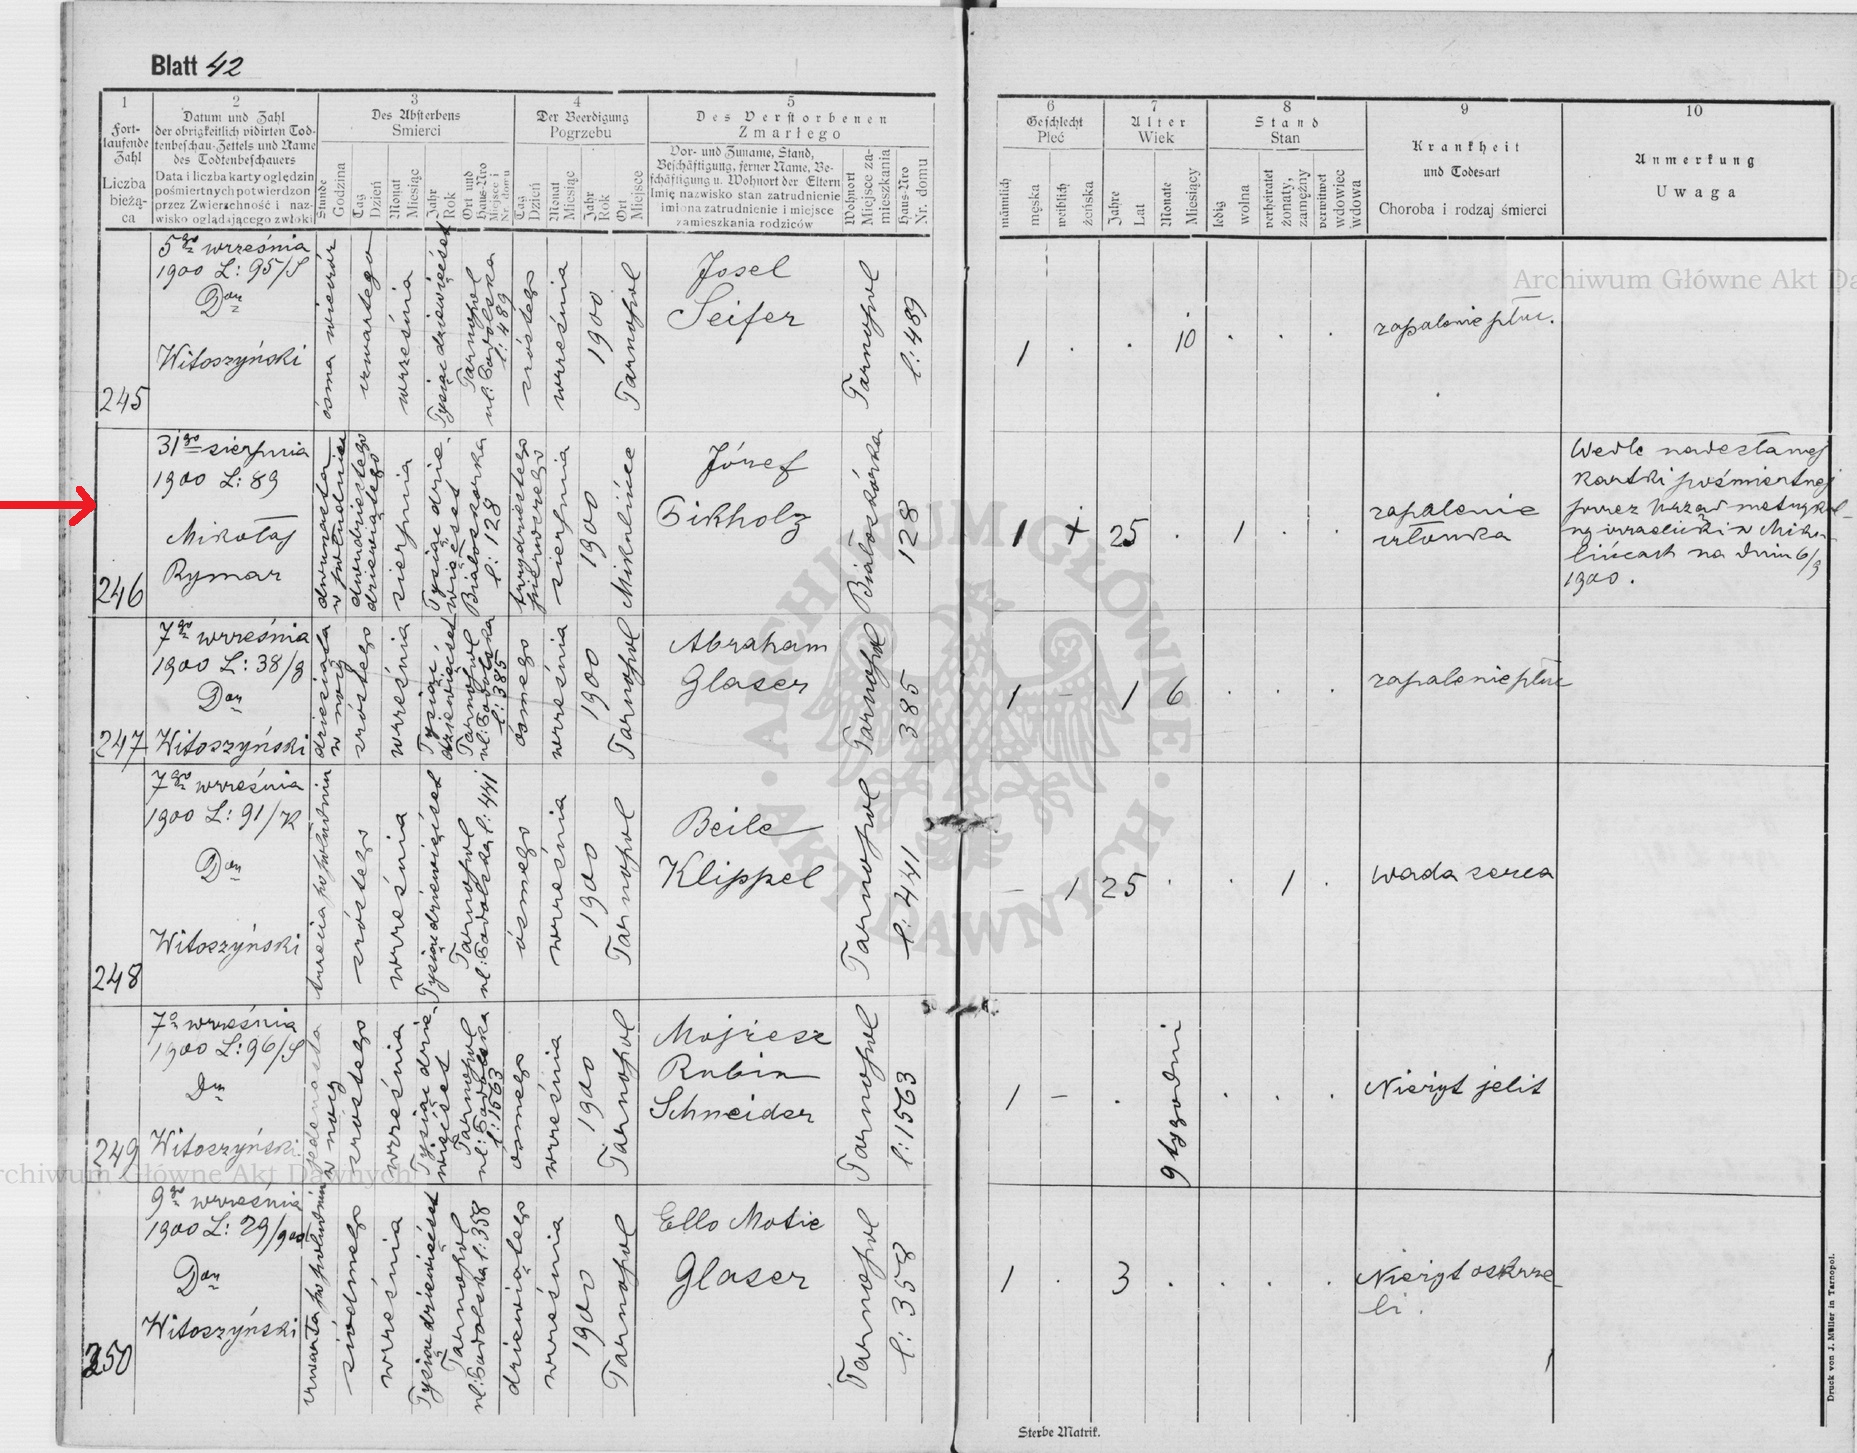 Blatt 42
1
Fort-
laufende
Zahl
Liczba
bieżą-
ca
2
Datum und Zahl
der obrigkeitlich vidirten Tod-
tenbeschau-Zettels und Name
des Todtenbeschauers
Data i liczba karty oględzin
pośmiertnych potwierdzon
przez Zwierzchność i naz-
wisko oglądającego zwłoki
3
Des Absterbens
Śmierci
Stunde
Godzina
Tag
Dzień
Monat
Miesiąc
Jahr
Rok
Ort und
Haus-Nro
Miejsce i
Nr. domu
4
Der Beerdigung
Pogrzebu
Tag
Dzień
Monat
Miesiąc
Jahr
Rok
Ort
Miejsce
5
Des Verstorbenen
Zmarłego
Vor- und Zuname, Stand,
Beschäftigung, ferner Name, Be-
schäftigung u. Wohnort der Eltern
Imię nazwisko stan zatrudnienie
imiona zatrudnienie i miejsce
zamieszkania rodziców
Wohnort
Miejsce za-
mieszkania
Haus-Nro
Nr. domu
6
Geschlecht
Płeć
männlich
męska
weiblich
żeńska
7
Alter
Wiek
Jahre
Lat
Monate
Miesiący
8
Stand
Stan
ledig
wolna
verheiratet
żonaty,
zamężny
verwitwet
wdowiec
wdowa
9
Krankheit
und Todesart
Choroba i rodzaj śmierci
10
Anmerkung
Uwaga
245
5go września
1900 L: 95/S
Dan
Witoszyński
ósma wieczór
czwartego
września
Tysiąc dziewięćset
Tarnopol
l: 489
szóstego
września
1900
Tarnopol
Josel
Seifer
Tarnopol
l: 489
1
10
zapalenie płuc.
246
31go sierpnia
1900 L: 89
Mikołaj
Rymar
dwunasta
w południe
dwudziestego
dziewiątego
sierpnia
Tysiąc dzie-
więćset
Białoskórka
l: 128
trzydziestego
pierwszego
sierpnia
1900
Mikulińce
Józef
Eikholz
Białoskórka
128
1 + 25 1
zapalenie
członka
Wedle nadesłanej
kartki pośmiertnej
przez Urząd metrykal-
ny izraelicki w Miku-
lińcach na dniu 6/9
1900.
247
7go września
1900 L: 38/g
Dan
Witoszyński
dziesiąta
w nocy
szóstego
września
Tysiąc
dziewięćset
Tarnopol
l: 385
ósmego
września
1900
Tarnopol
Abraham
Glaser
Tarnopol
385
1 - 1 6
zapalenie płuc
248
7go września
1900 L: 91/K
Dan
Witoszyński
trzecia popołudniu
szóstego
września
Tysiąc dziewięćset
Tarnopol
l: 441
ósmego
września
1900
Tarnopol
Beile
Klippel
Tarnopol
l: 441
- 1 25 1
wada serca
249
7o września
1900 L: 96/S
Dan
Witoszyński
jedenasta
w nocy
szóstego
września
Tysiąc dzie-
więćset
Tarnopol
l: 1563
ósmego
września
1900
Tarnopol
Mojżesz
Rubin
Schneider
Tarnopol
l: 1563
1 -
9 tygodni
Nieżyt jelit
250
9go września
1900 L: 29/god
Dan
Witoszyński
czwarta popołudniu
siódmego
września
Tysiąc dziewięćset
Tarnopol
l: 358
dziewiątego
września
1900
Tarnopol
Ello Motie
Glaser
Tarnopol
l: 358
1 3
Nieżyt oskrze-
li.
Sterbe Matrik.
Druck von J. Müller in Tarnopol.
Archiwum Główne Akt Da
rchiwum Główne Akt Dawnych
ARCHIWUM GŁÓWNE AKT DAWNYCH